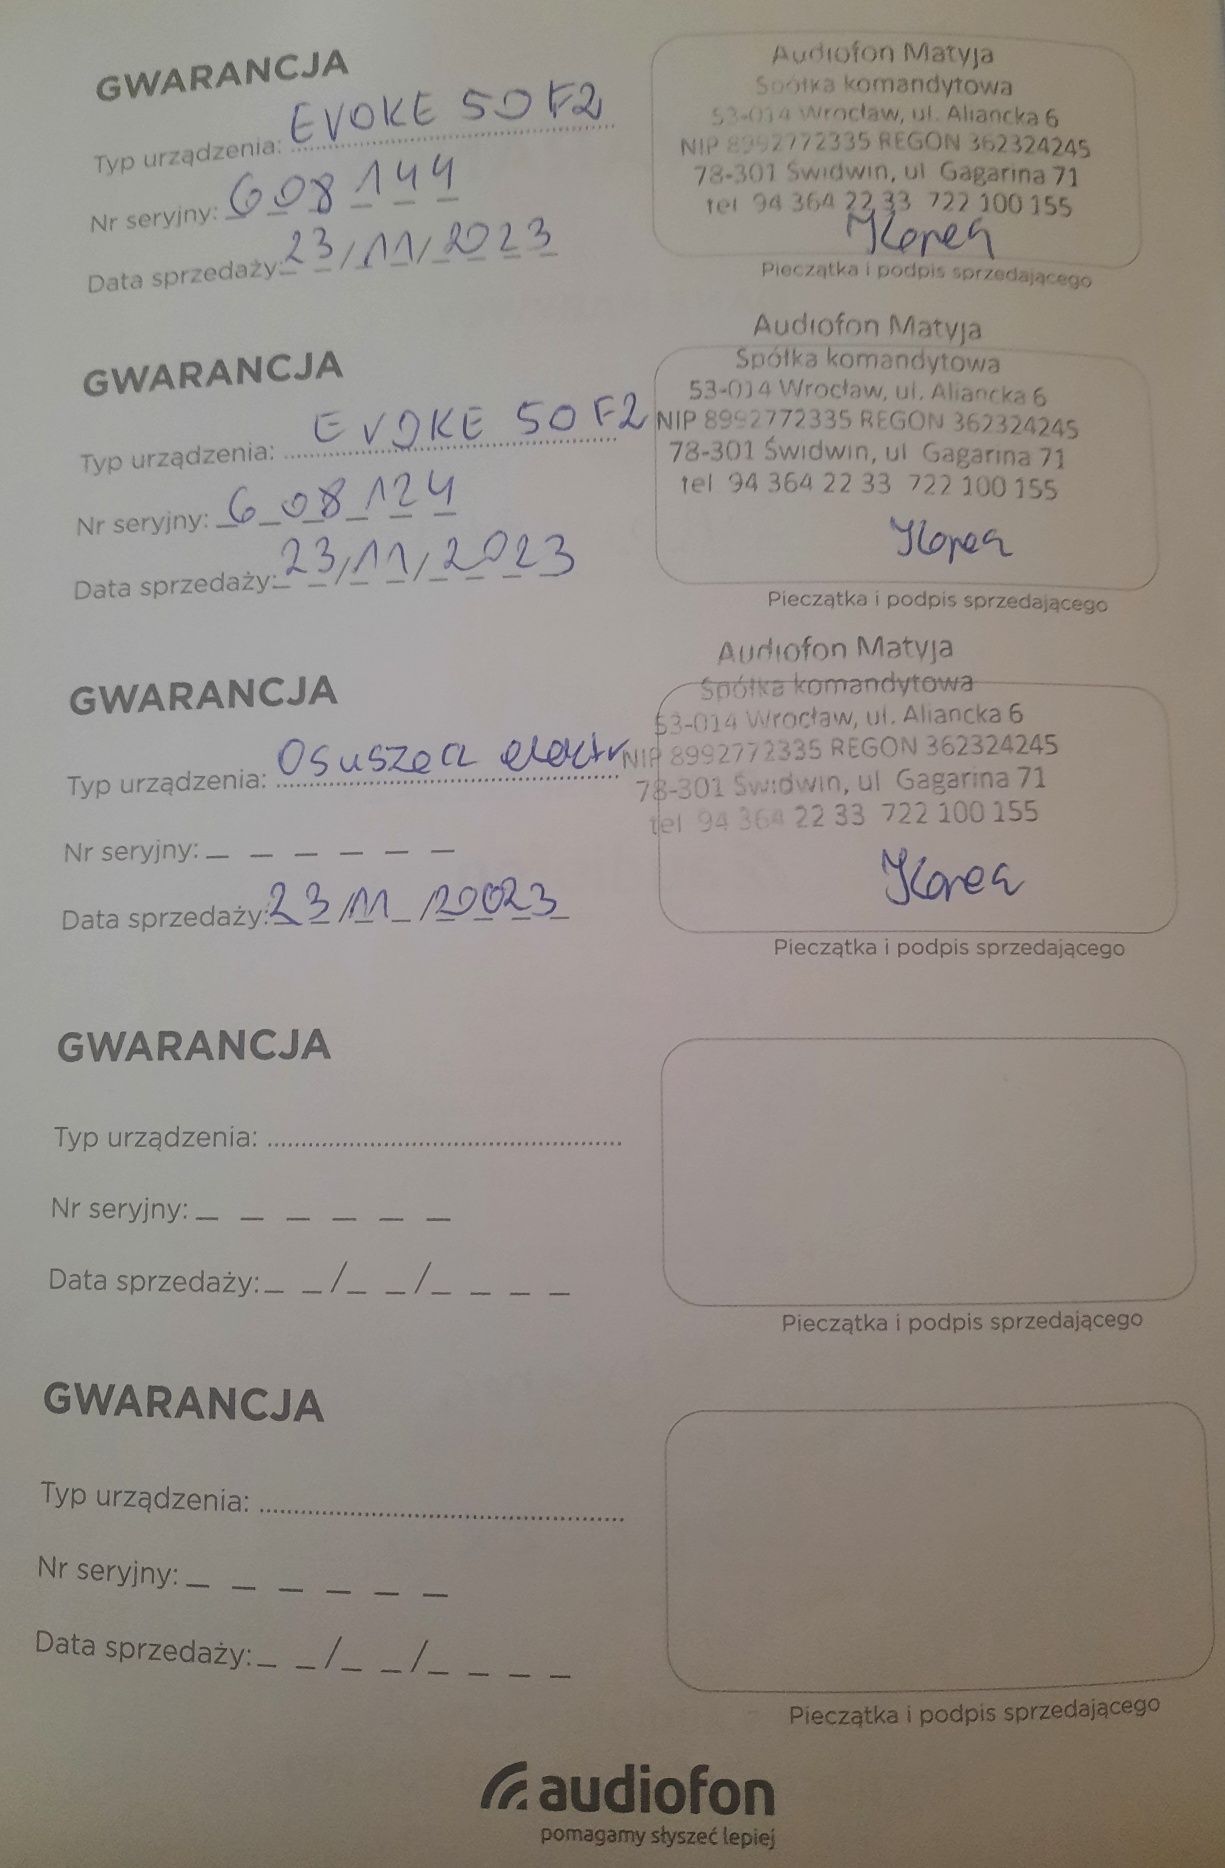 GWARANCJA
Typ urządzenia: EVOKE 50 F2
Nr seryjny: 608144
Data sprzedaży: 23/11/2023
Audiofon Matyja
Spółka komandytowa
53-014 Wrocław, ul. Aliancka 6
NIP 8992772335 REGON 362324245
78-301 Świdwin, ul Gagarina 71
tel 94 364 22 33 722 100 155
Pieczątka i podpis sprzedającego
GWARANCJA
Typ urządzenia: EVOKE 50 F2
Nr seryjny: 608124
Data sprzedaży: 23/11/2023
Audiofon Matyja
Spółka komandytowa
53-014 Wrocław, ul. Aliancka 6
NIP 8992772335 REGON 362324245
78-301 Świdwin, ul Gagarina 71
tel 94 364 22 33 722 100 155
Pieczątka i podpis sprzedającego
GWARANCJA
Typ urządzenia: Osuszacz elektr
Nr seryjny: _ _ _ _ _ _
Data sprzedaży: 23/11/20023
Audiofon Matyja
Spółka komandytowa
53-014 Wrocław, ul. Aliancka 6
NIP 8992772335 REGON 362324245
78-301 Świdwin, ul Gagarina 71
tel 94 364 22 33 722 100 155
Pieczątka i podpis sprzedającego
GWARANCJA
Typ urządzenia: ....................
Nr seryjny: _ _ _ _ _ _
Data sprzedaży: _ _/_ _/_ _ _ _
Pieczątka i podpis sprzedającego
GWARANCJA
Typ urządzenia: ....................
Nr seryjny: _ _ _ _ _ _
Data sprzedaży: _ _/_ _/_ _ _ _
Pieczątka i podpis sprzedającego
audiofon
pomagamy słyszeć lepiej